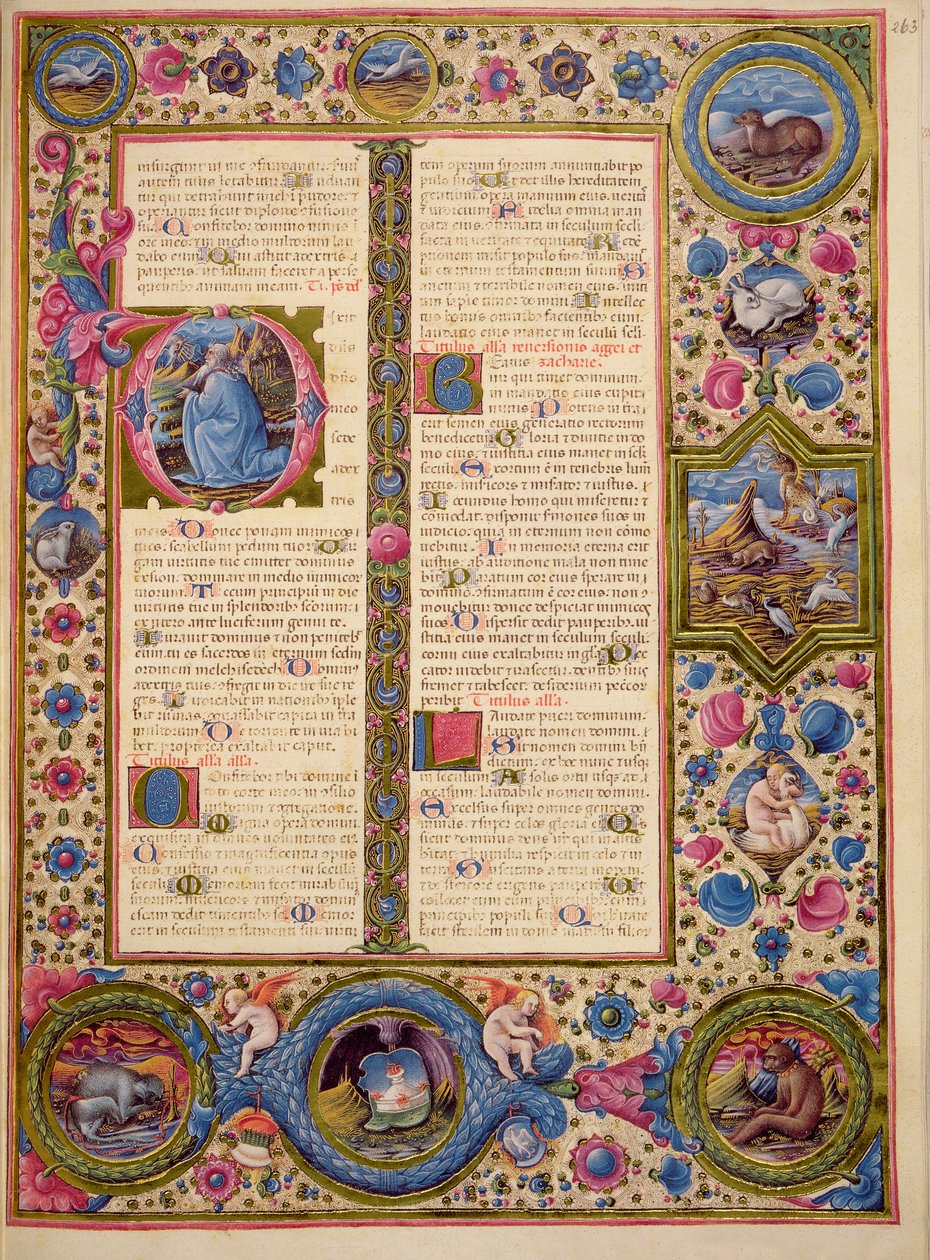 263
insurgunt in me confundantur: servus
autem tuus letabitur. Induan
tur qui detrahunt michi pudore: et
operiantur sicut diploide confusione
sua. Confitebor domino nimis in
ore meo: et in medio multorum lau
dabo eum. Qui astitit a dextris
pauperis: ut salvam faceret a perse
quentibus animam meam.
Dixit
dñs
dño
meo
sede
a dex
tris
meis. Donec ponam inimicos
tuos: scabellum pedum tuorum. Vir
gam virtutis tue emittet dominus
ex sion: dominare in medio inimicor
tuorum. Tecum principium in die
virtutis tue in splendoribus
ex utero ante luciferum genui te.
Iuravit dominus et non penitebit
eum: tu es sacerdos in eternum secundum
ordinem melchisedech. Dominus
a dextris tuis: confregit in die ire sue re
ges. Iudicabit in nationibus imple
bit ruinas: conquassabit capita in terra
multorum. De torrente in via bi
bet: propterea exaltabit caput.
Titulus alla alla.
Confitebor tibi domine in
toto corde meo: in consilio
iustorum et congregatione.
Magna opera domini:
exquisita in omnes voluntates eius.
Confessio et magnificentia opus
eius: et iustitia eius manet in seculum
seculi. Memoriam fecit mirabilium
suorum: misericors et miserator dominus:
escam dedit timentibus se. Memor
erit in seculum testamenti sui: virtu
tem operum suorum annuntiabit po
pulo suo. Ut det illis hereditatem
gentium: opera manuum eius veritas
et iudicium. Fidelia omnia man
data eius: confirmata in seculum seculi
facta in veritate et equitate. Redem
ptionem misit populo suo: mandavit
in eternum testamentum suum. Sanctum
et terribile nomen eius: initi
um sapientie timor domini. Intellec
tus bonus omnibus facientibus eum:
laudatio eius manet in seculum seculi
Titulus alla reversionis aggei et
Beatus zacharie.
vir qui timet dominum:
in mandatis eius cupiet
nimis. Potens in terra
erit semen eius: generatio rectorum
benedicetur. Gloria et divitie in do
mo eius: et iustitia eius manet in seculum
seculi. Exortum est in tenebris lumen
rectis: misericors et miserator et iustus.
Iocundus homo qui miseretur et
comodat, disponit sermones suos in
iudicio: quia in eternum non como
vebitur. In memoria eterna erit
iustus: ab auditione mala non time
bit. Paratum cor eius sperare in
domino: confirmatum est cor eius: non com
movebitur donec despiciat inimicos
suos. Dispersit dedit pauperibus: iu
stitia eius manet in seculum seculi:
cornu eius exaltabitur in gloria. Pec
cator videbit et irascetur: dentibus suis
fremet et tabescet: desiderium peccatorum
peribit. Titulus alla.
Laudate pueri dominum:
laudate nomen domini.
Sit nomen domini bene
dictum: ex hoc nunc et usque
in seculum. A solis ortu usque ad
occasum: laudabile nomen domini.
Excelsus super omnes gentes do
minus: et super celos gloria eius. Quis
sicut dominus deus noster qui in altis
habitat: et humilia respicit in celo et in
terra. Suscitans a terra inopem:
et de stercore erigens pauperem. Ut
collocet eum cum principibus: cum
principibus populi sui. Qui habitare
facit sterilem in domo: matrem filiorum